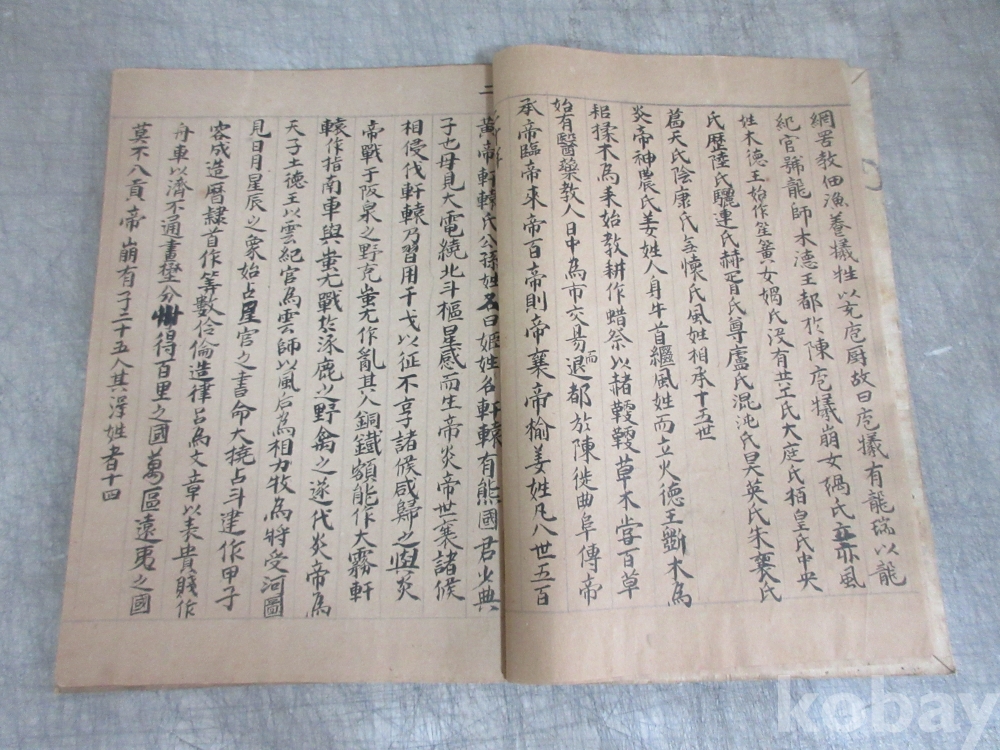 網罟教佃漁養犧牲以充庖厨故曰庖犧有龍瑞以龍
紀官號龍師木德王都於陳庖犧崩女媧氏立亦風
姓木德王始作笙簧女媧氏没有共工氏大庭氏栢皇氏中央
氏歷陸氏驪連氏赫胥氏尊盧氏混沌氏昊英氏朱襄氏
葛天氏陰康氏無懷氏風姓相承十五世
炎帝神農氏姜姓人身牛首繼風姓而立火德王斲木為
耜揉木為耒始教耕作蜡祭以赭鞭鞭草木甞百草
始有醫藥教人日中為市交易而退都於陳徙曲阜傳帝
承帝臨帝來帝百帝則帝襄帝榆姜姓凡八世五百
二
黃帝軒轅氏公孫姓名曰姬姓名軒轅有熊國君少典
子也母見大電繞北斗樞星感而生帝炎帝世衰諸候
相侵伐軒轅乃習用干戈以征不享諸候咸歸之與炎
帝戰于阪泉之野克蚩尤作亂其人銅鐵額能作大霧軒
轅作指南車與蚩尤戰於涿鹿之野禽之遂代炎帝為
天子土德王以雲紀官為雲師以風后為相力牧為將受河圖
見日月星辰之象始占星官之書命大撓占斗建作甲子
容成造曆隷首作等數伶倫造律呂為文章以表貴賤作
舟車以濟不通畫壄分州得百里之國萬區遠夷之國
莫不入貢帝崩有子二十五人其得姓者十四
kobay